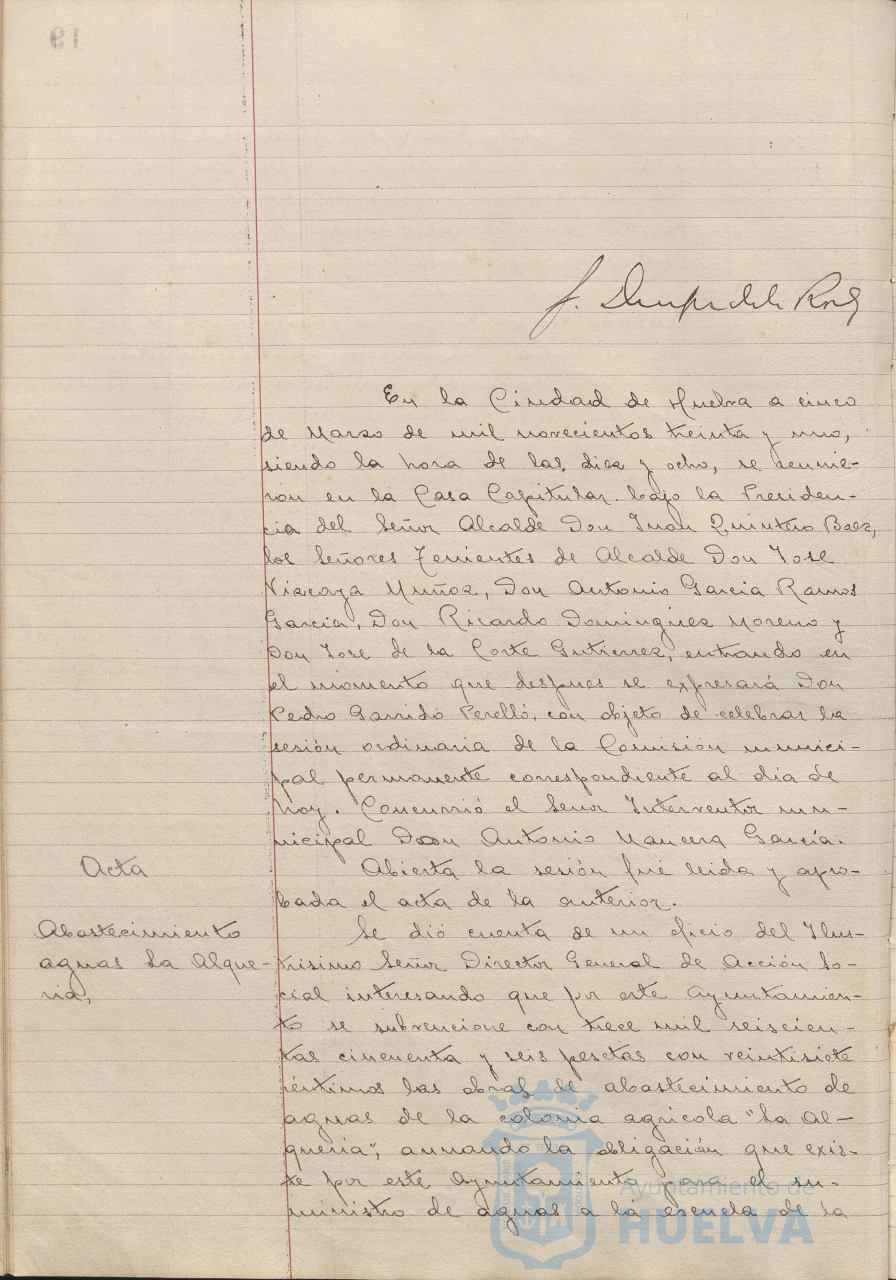 19
En la Ciudad de Huelva a cinco
de Marzo de mil novecientos treinta y uno,
siendo la hora de las diez y ocho, se reunie-
ron en la Casa Capitular bajo la Presiden-
cia del Señor Alcalde Don Juan Quintero Baez,
los Señores Tenientes de Alcalde Don Jose
Vizcaya Muñoz, Don Antonio Garcia Ramos
Garcia, Don Ricardo Dominguez Moreno y
Don Jose de la Corte Gutierrez, entrando en
el momento que despues se expresará Don
Pedro Garrido Perelló, con objeto de celebrar la
sesión ordinaria de la Comisión munici-
pal permanente correspondiente al dia de
hoy. Concurrió el Señor Interventor mu-
nicipal Don Antonio Mancera García.
Acta
Abierta la sesión fué leida y apro-
bada el acta de la anterior.
Abastecimiento
aguas La Alque-
ria,
Se dió cuenta de un oficio del Ilus-
trisimo Señor Director General de Acción So-
cial interesando que por este Ayuntamien-
to se subvencione con trece mil seiscien-
tas cincuenta y seis pesetas con veintisiete
céntimos las obras de abastecimiento de
aguas de la colonia agricola "La Al-
queria", aunando la obligación que exis-
te por este Ayuntamiento para el su-
ministro de aguas a la escuela de la
Ayuntamiento de
HUELVA